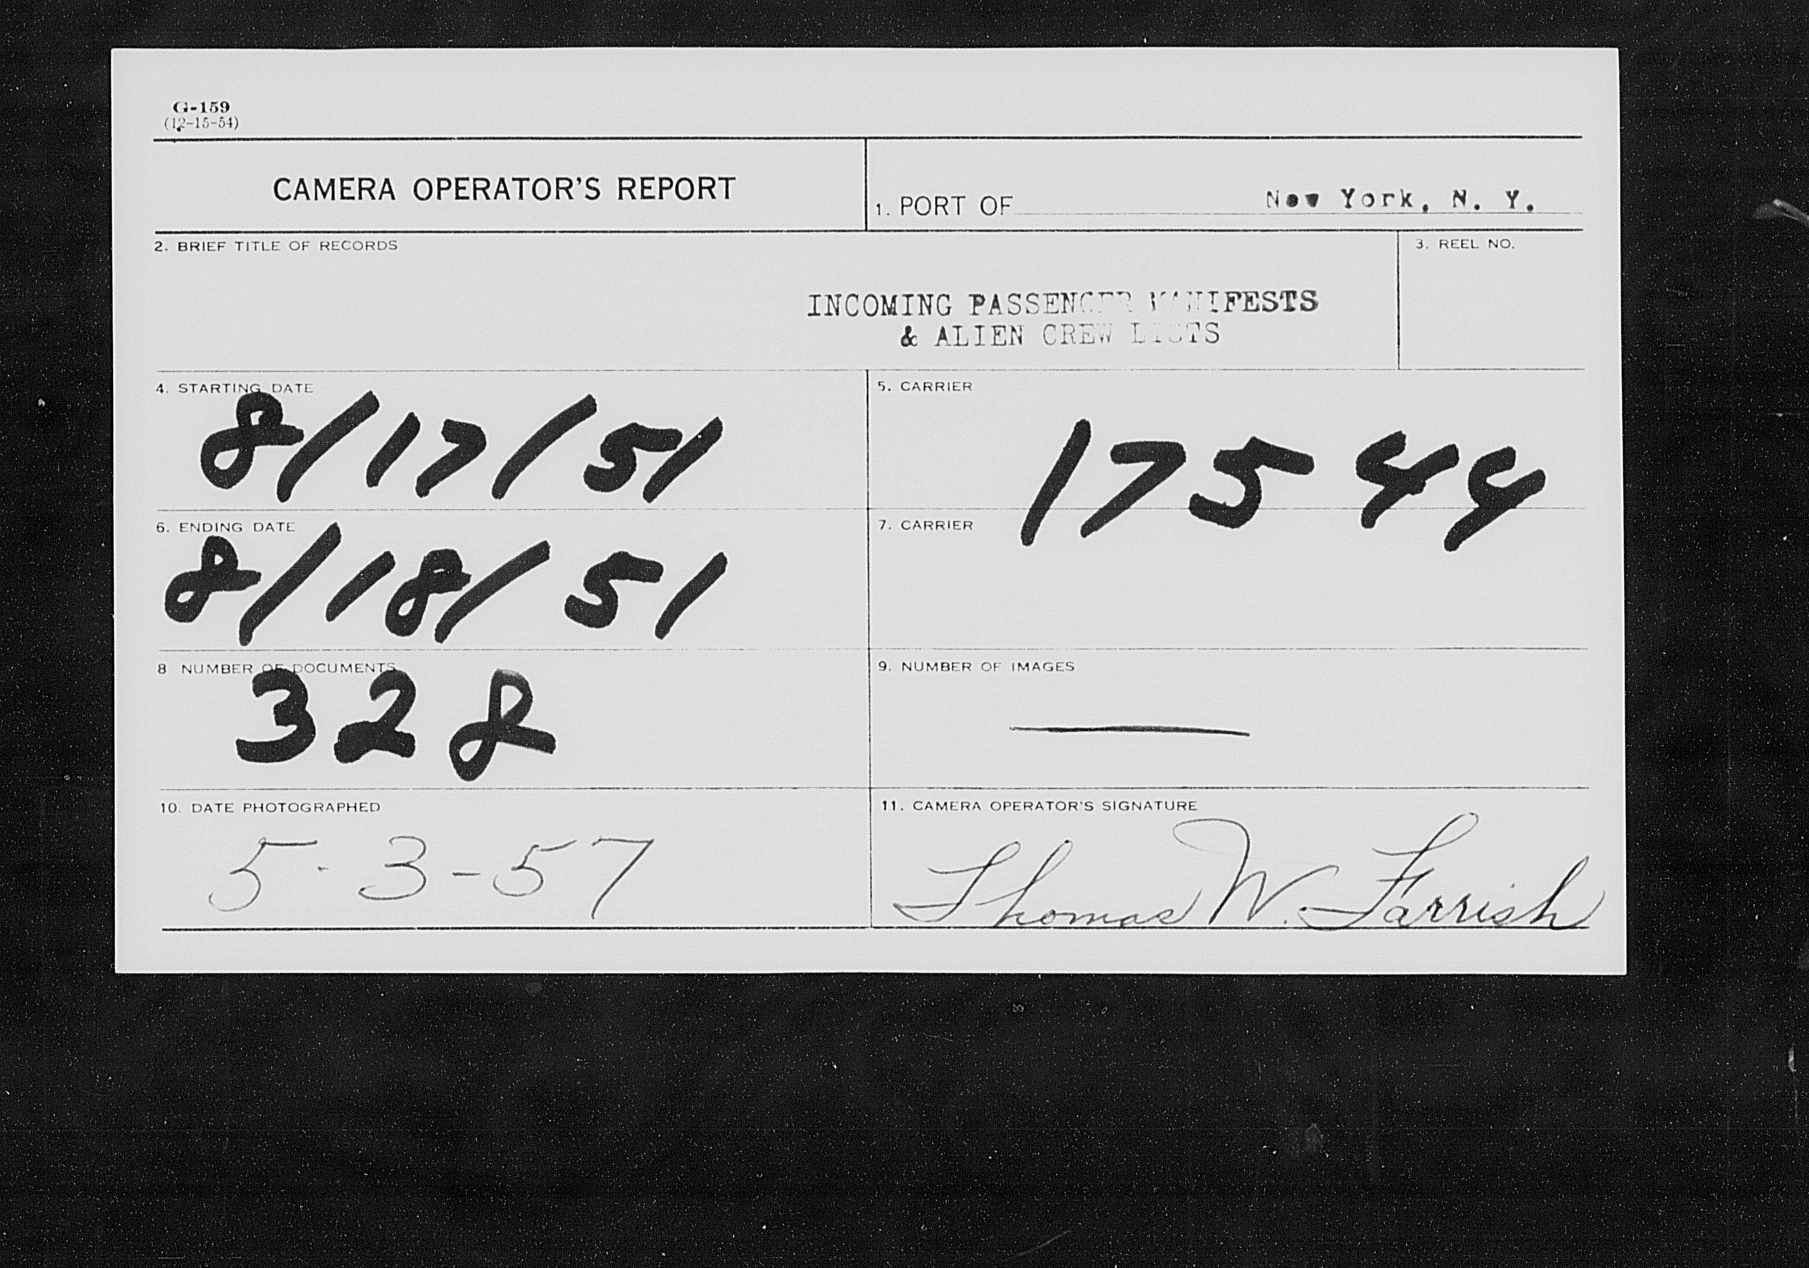 G-159
(12-15-54)
CAMERA OPERATOR'S REPORT
1. PORT OF New York, N. Y.
2. BRIEF TITLE OF RECORDS
3. REEL NO.
INCOMING PASSENGER MANIFESTS
& ALIEN CREW LISTS
4. STARTING DATE
8/17/51
5. CARRIER
17544
6. ENDING DATE
8/18/51
7. CARRIER
8 NUMBER OF DOCUMENTS
328
9. NUMBER OF IMAGES
10. DATE PHOTOGRAPHED
5-3-57
11. CAMERA OPERATOR'S SIGNATURE
Thomas W. Farrish